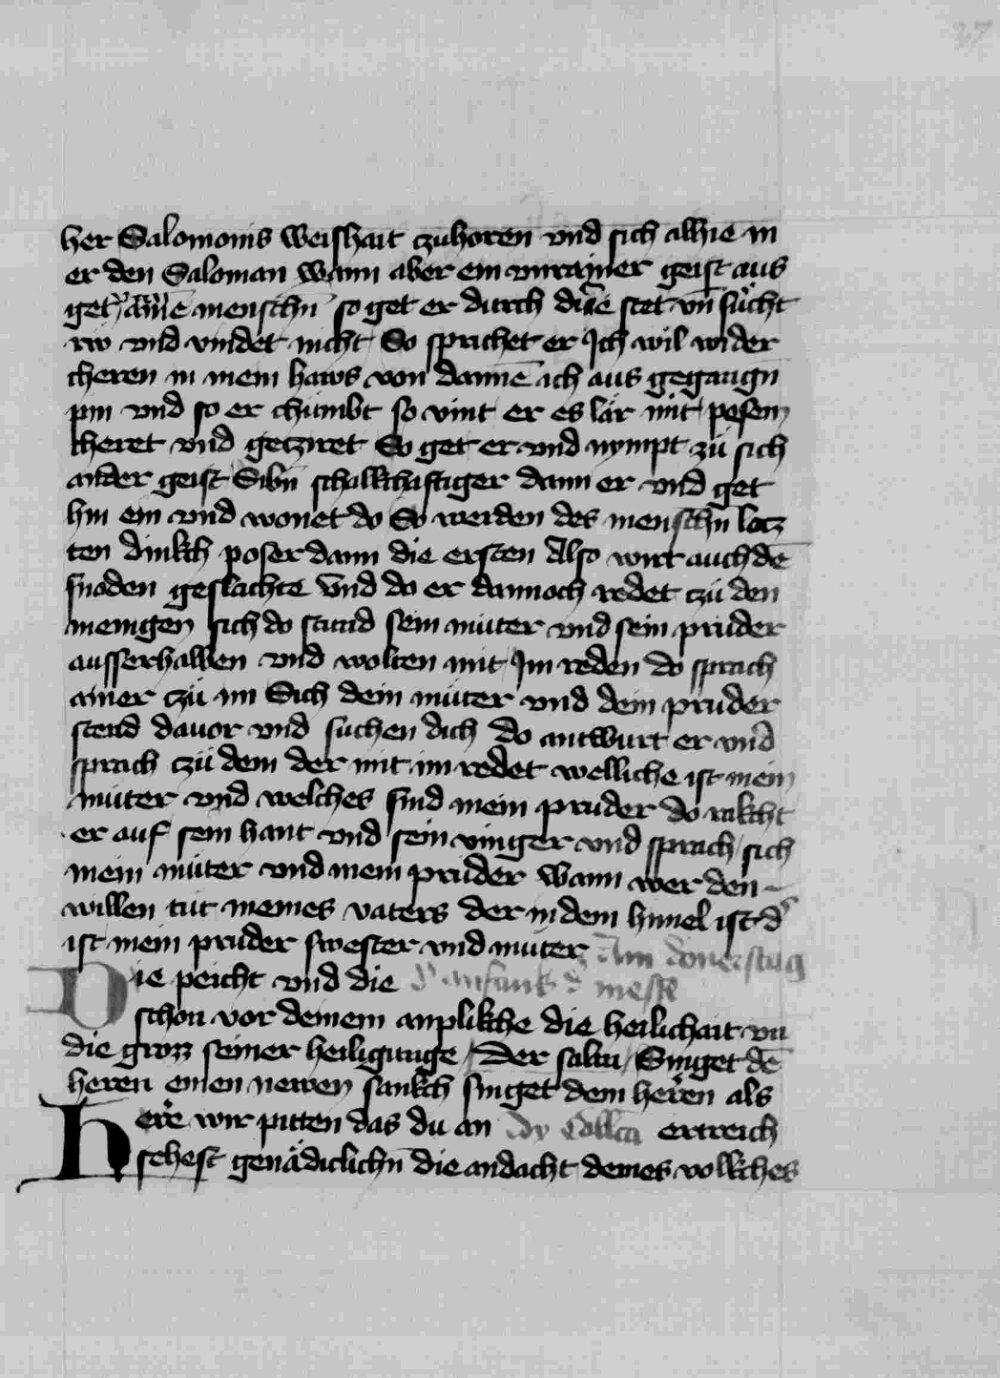 her Salomonis weishait czuhoren vnd sich alhie m
er den Saloman wann aber ein vnrainer geist aus
get so get er durch dürē stet vn̄ sücht
rw vnd vindet nicht So sprichet er Ich wil wider
cheren in mein haws von dannē ich aus gegangn
pin vnd so er chumbt so vint er es lär mit pesem
cheret vnd gecziret So get er vnd nympt zü sich
ander geist Sibn̄ schalkchaftiger dann er vnd get
hin ein vnd wonet do So werden des menschn lecz
ten dinkch poser dann die ersten Also wirt auch dē
snoden geslachte vnd do er dannoch redet czü den
menigen sich do stund sein müter vnd sein prüder
ausserhalben vnd wolten mit Im reden do sprach
ainer czü im Sich dein müter vnd dein prüder
stend dauor vnd suchen dich do antwurt er vnd
sprach czü dem der mit im redet welliche ist mein
müter vnd welches sind mein prüder do rakcht
er auf sein hant vnd sein vinger vnd sprach sich
mein müter vnd mein prüder wann wer den
willen tüt meines vaters der in dem himel ist d᾽
ist mein prüder swester vnd müter Am donerstag
Die peicht vnd die d᾽ anfank d᾽ messe
schon vor deinem anplikche die heilichait vn̄
die grozz seiner heiligunge Der salm Singet dē
heren einen newen sankch singet dem heren als
Here wir pitten das du an Dy Collcā ertreich
sehest genädiclichn̄ die andacht deines volkches